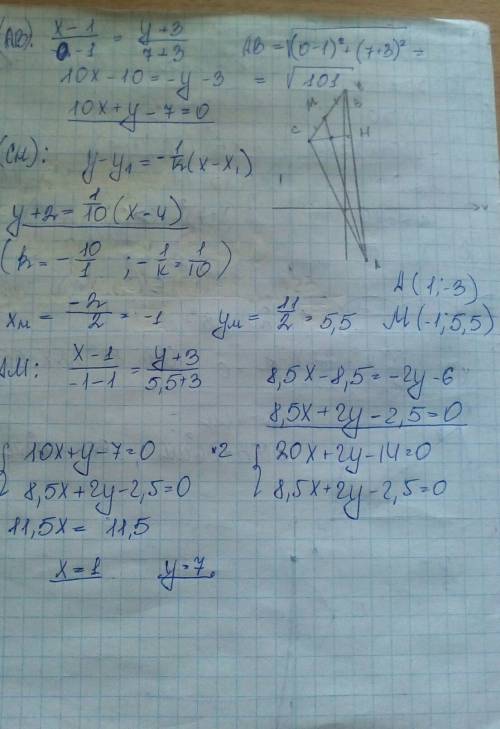 (AB): (x-1)/(0-1) = (y+3)/(7+3)
AB = √((0-1)²+(7+3)²) =
10x-10=-y-3 = √101
10x+y-7=0
(CH): y-y₁=-1/k(x-x₁)
y+2=1/10(x-4)
(k=-10/1; -1/k=1/10)
x_M = -2/2 = -1 y_M = 11/2 = 5,5
A(1;-3)
M(-1;5,5)
AM: (x-1)/(-1-1) = (y+3)/(5,5+3)
8,5x-8,5=-2y-6
8,5x+2y-2,5=0
{ 10x+y-7=0 ·2 { 20x+2y-14=0
8,5x+2y-2,5=0 8,5x+2y-2,5=0
11,5x= 11,5
x=1 y=7.
M
B
C
H
x
A